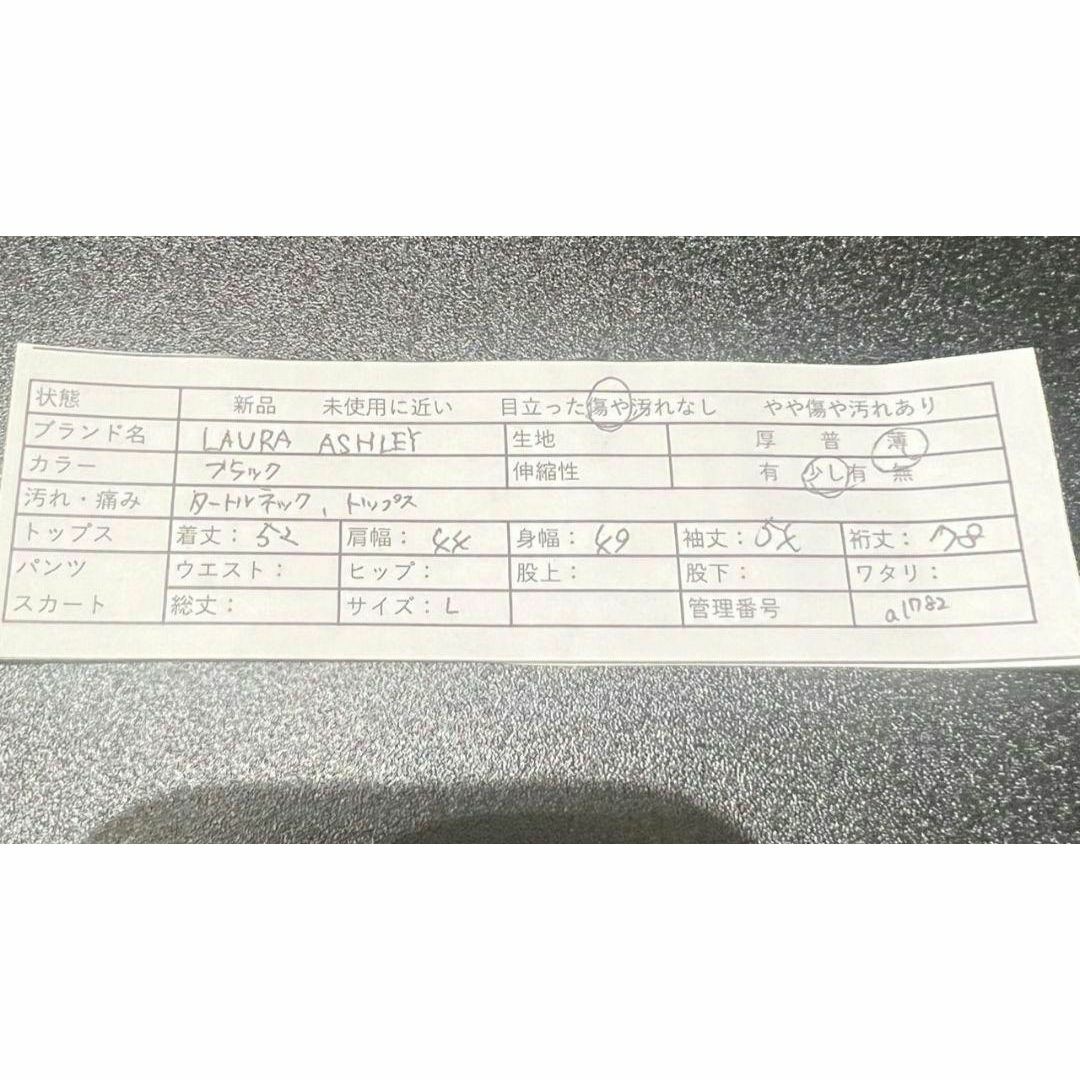 状態 新品 未使用に近い 目立った傷や汚れなし やや傷や汚れあり
ブランド名 LAURA ASHLEY 生地 厚 普 薄
カラー ブラック 伸縮性 有 少し有 無
汚れ・痛み タートルネック, トップス
トップス 着丈：52 肩幅：44 身幅：49 袖丈：54 裄丈：78
パンツ ウエスト： ヒップ： 股上： 股下： ワタリ：
スカート 総丈： サイズ：L 管理番号 a1782